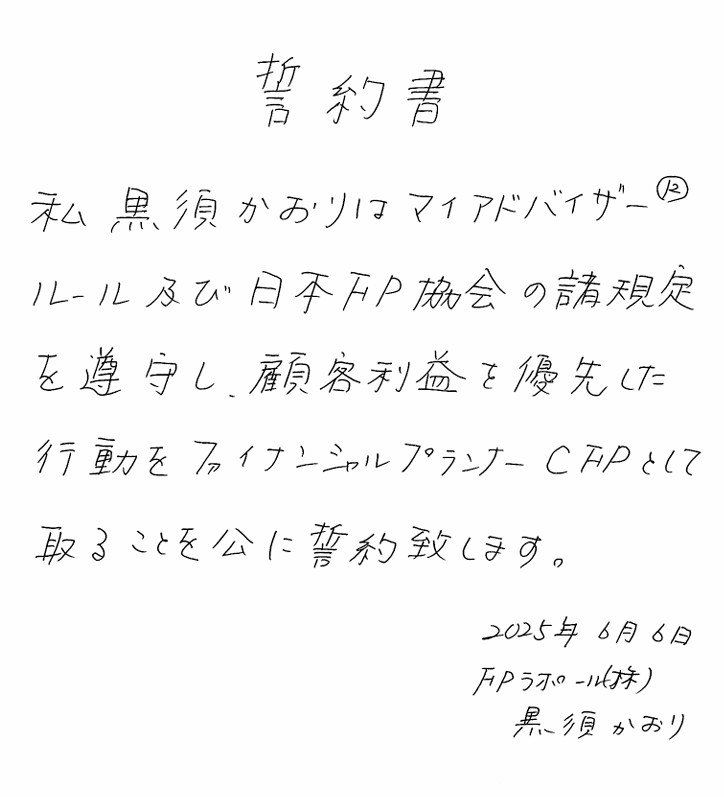 誓約書
私 黒須かおりはマイアドバイザー®
ルール及び日本FP協会の諸規定
を遵守し、顧客利益を優先した
行動をファイナンシャルプランナーCFPとして
取ることを公に誓約致します。
2025年6月6日
FPラポール(株)
黒須かおり